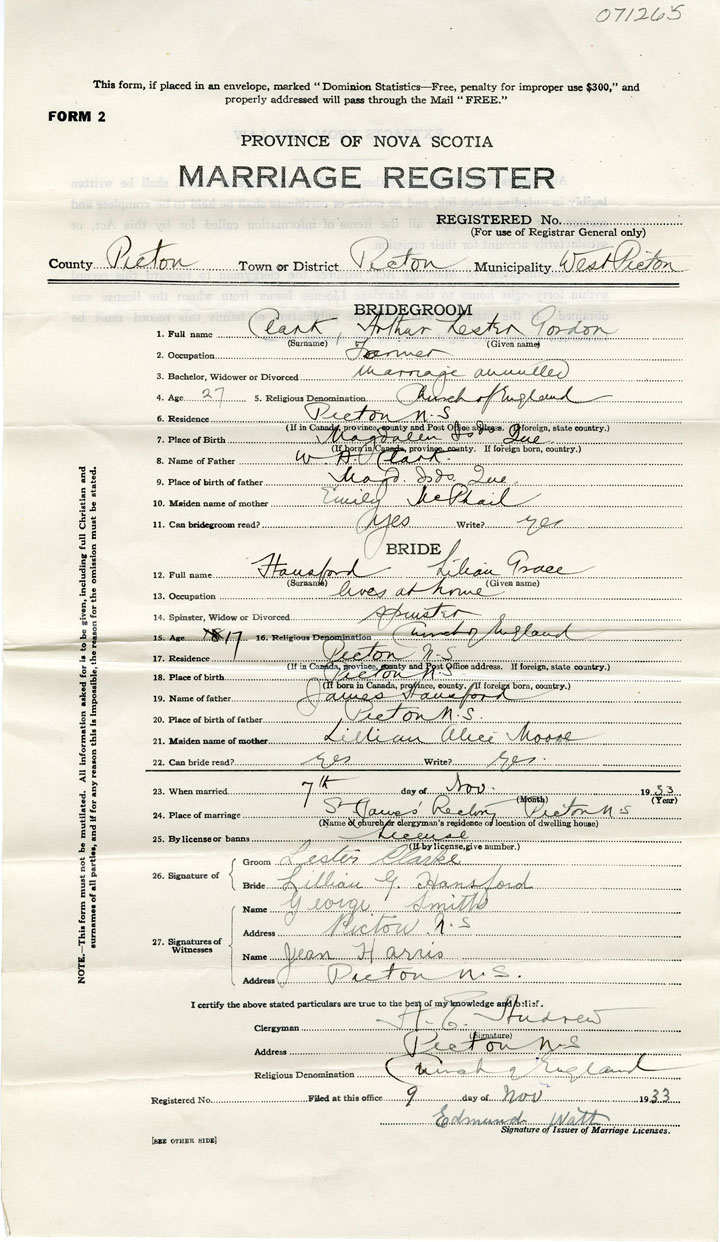 071265
This form, if placed in an envelope, marked "Dominion Statistics—Free, penalty for improper use $300," and
properly addressed will pass through the Mail "FREE."
FORM 2
PROVINCE OF NOVA SCOTIA
MARRIAGE REGISTER
REGISTERED No.
(For use of Registrar General only)
County Pictou Town or District Pictou Municipality West Pictou
BRIDEGROOM
1. Full name Clark, Arthur Lester Gordon
(Surname) (Given name)
2. Occupation Farmer
3. Bachelor, Widower or Divorced marriage annulled
4. Age 27 5. Religious Denomination Church of England
6. Residence Pictou N-S
(If in Canada, province, county and Post Office address. If foreign, state country.)
7. Place of Birth Magdalen Isds Que
(If born in Canada, province, county. If foreign born, country.)
8. Name of Father W. H. Clark
9. Place of birth of father Magd. Isds. Que
10. Maiden name of mother Emily McPhail
11. Can bridegroom read? yes Write? yes
BRIDE
12. Full name Hansford Lilian Grace
(Surname) (Given name)
13. Occupation lives at home
14. Spinster, Widow or Divorced spinster
15. Age 17 16. Religious Denomination Church of England
17. Residence Pictou N-S
(If in Canada, province, county and Post Office address. If foreign, state country.)
18. Place of birth Pictou N-S
(If born in Canada, province, county. If foreign born, country.)
19. Name of father James Hansford
20. Place of birth of father Pictou N-S.
21. Maiden name of mother Lillian Alice Moore
22. Can bride read? yes Write? yes.
23. When married 7th day of Nov. 1933
(Month) (Year)
24. Place of marriage St James' Rectory Pictou N-S
(Name of church or clergyman's residence or location of dwelling house)
25. By license or banns License
(If by license, give number.)
26. Signature of
Groom Lester Clarke
Bride Lillian G. Hansford
27. Signatures of Witnesses
Name George Smith
Address Pictou N.S
Name Jean Harris
Address Pictou N.S.
I certify the above stated particulars are true to the best of my knowledge and belief.
Clergyman H. E. Andrew
(Signature)
Address Pictou N-S
Religious Denomination Church of England
Registered No. Filed at this office 9 day of Nov 1933
Edmund Watt
Signature of Issuer of Marriage Licenses.
[SEE OTHER SIDE]
NOTE.—This form must not be mutilated. All information asked for is to be given, including full Christian and
surnames of all parties, and if for any reason this is impossible, the reason for the omission must be stated.